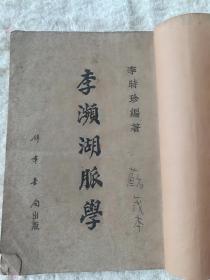 李時珍編著
李瀕湖脈學
錦章書局出版
蘇